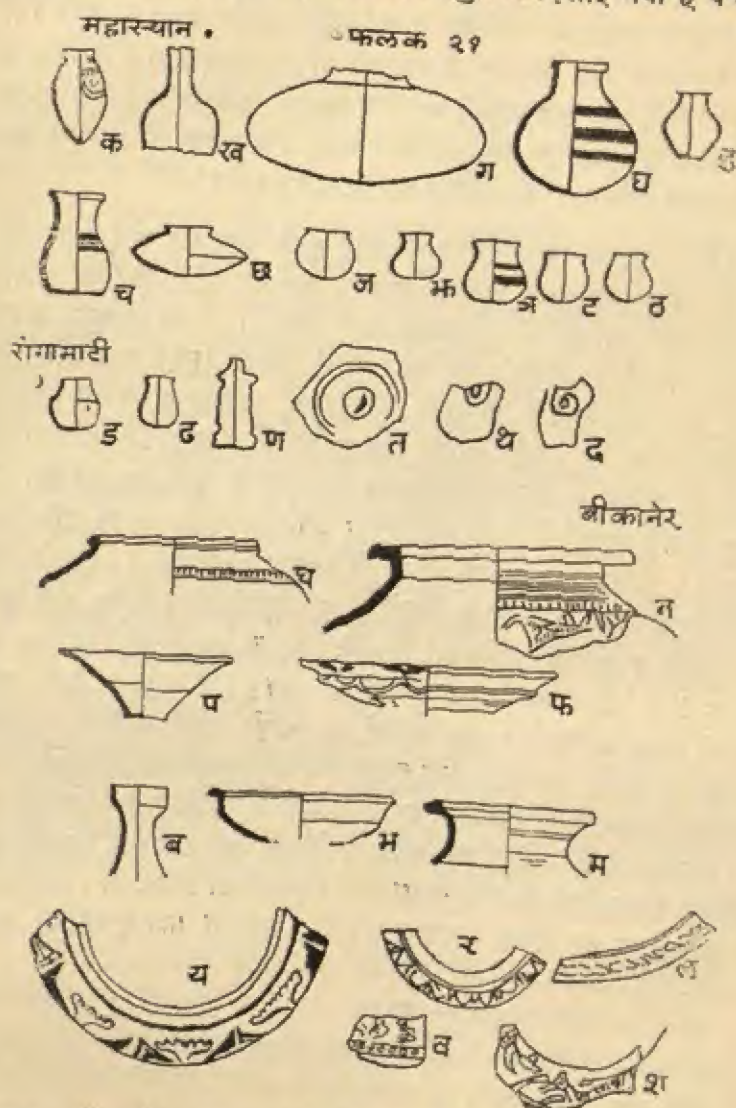 महास्थान .
फलक २१
क ख ग घ ङ
च छ ज झ ञ ट ठ
रांगामाटी
ड ढ ण त थ द
बीकानेर
ध न
प फ
ब भ म
य र ल
व श